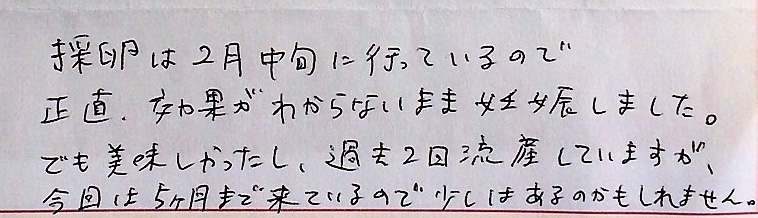 採卵は2月中旬に行っているので
正直、効果がわからないまま妊娠しました。
でも美味しかったし、過去2回流産していますが、
今回は5ヶ月まで来ているので少しはあるのかもしれません。